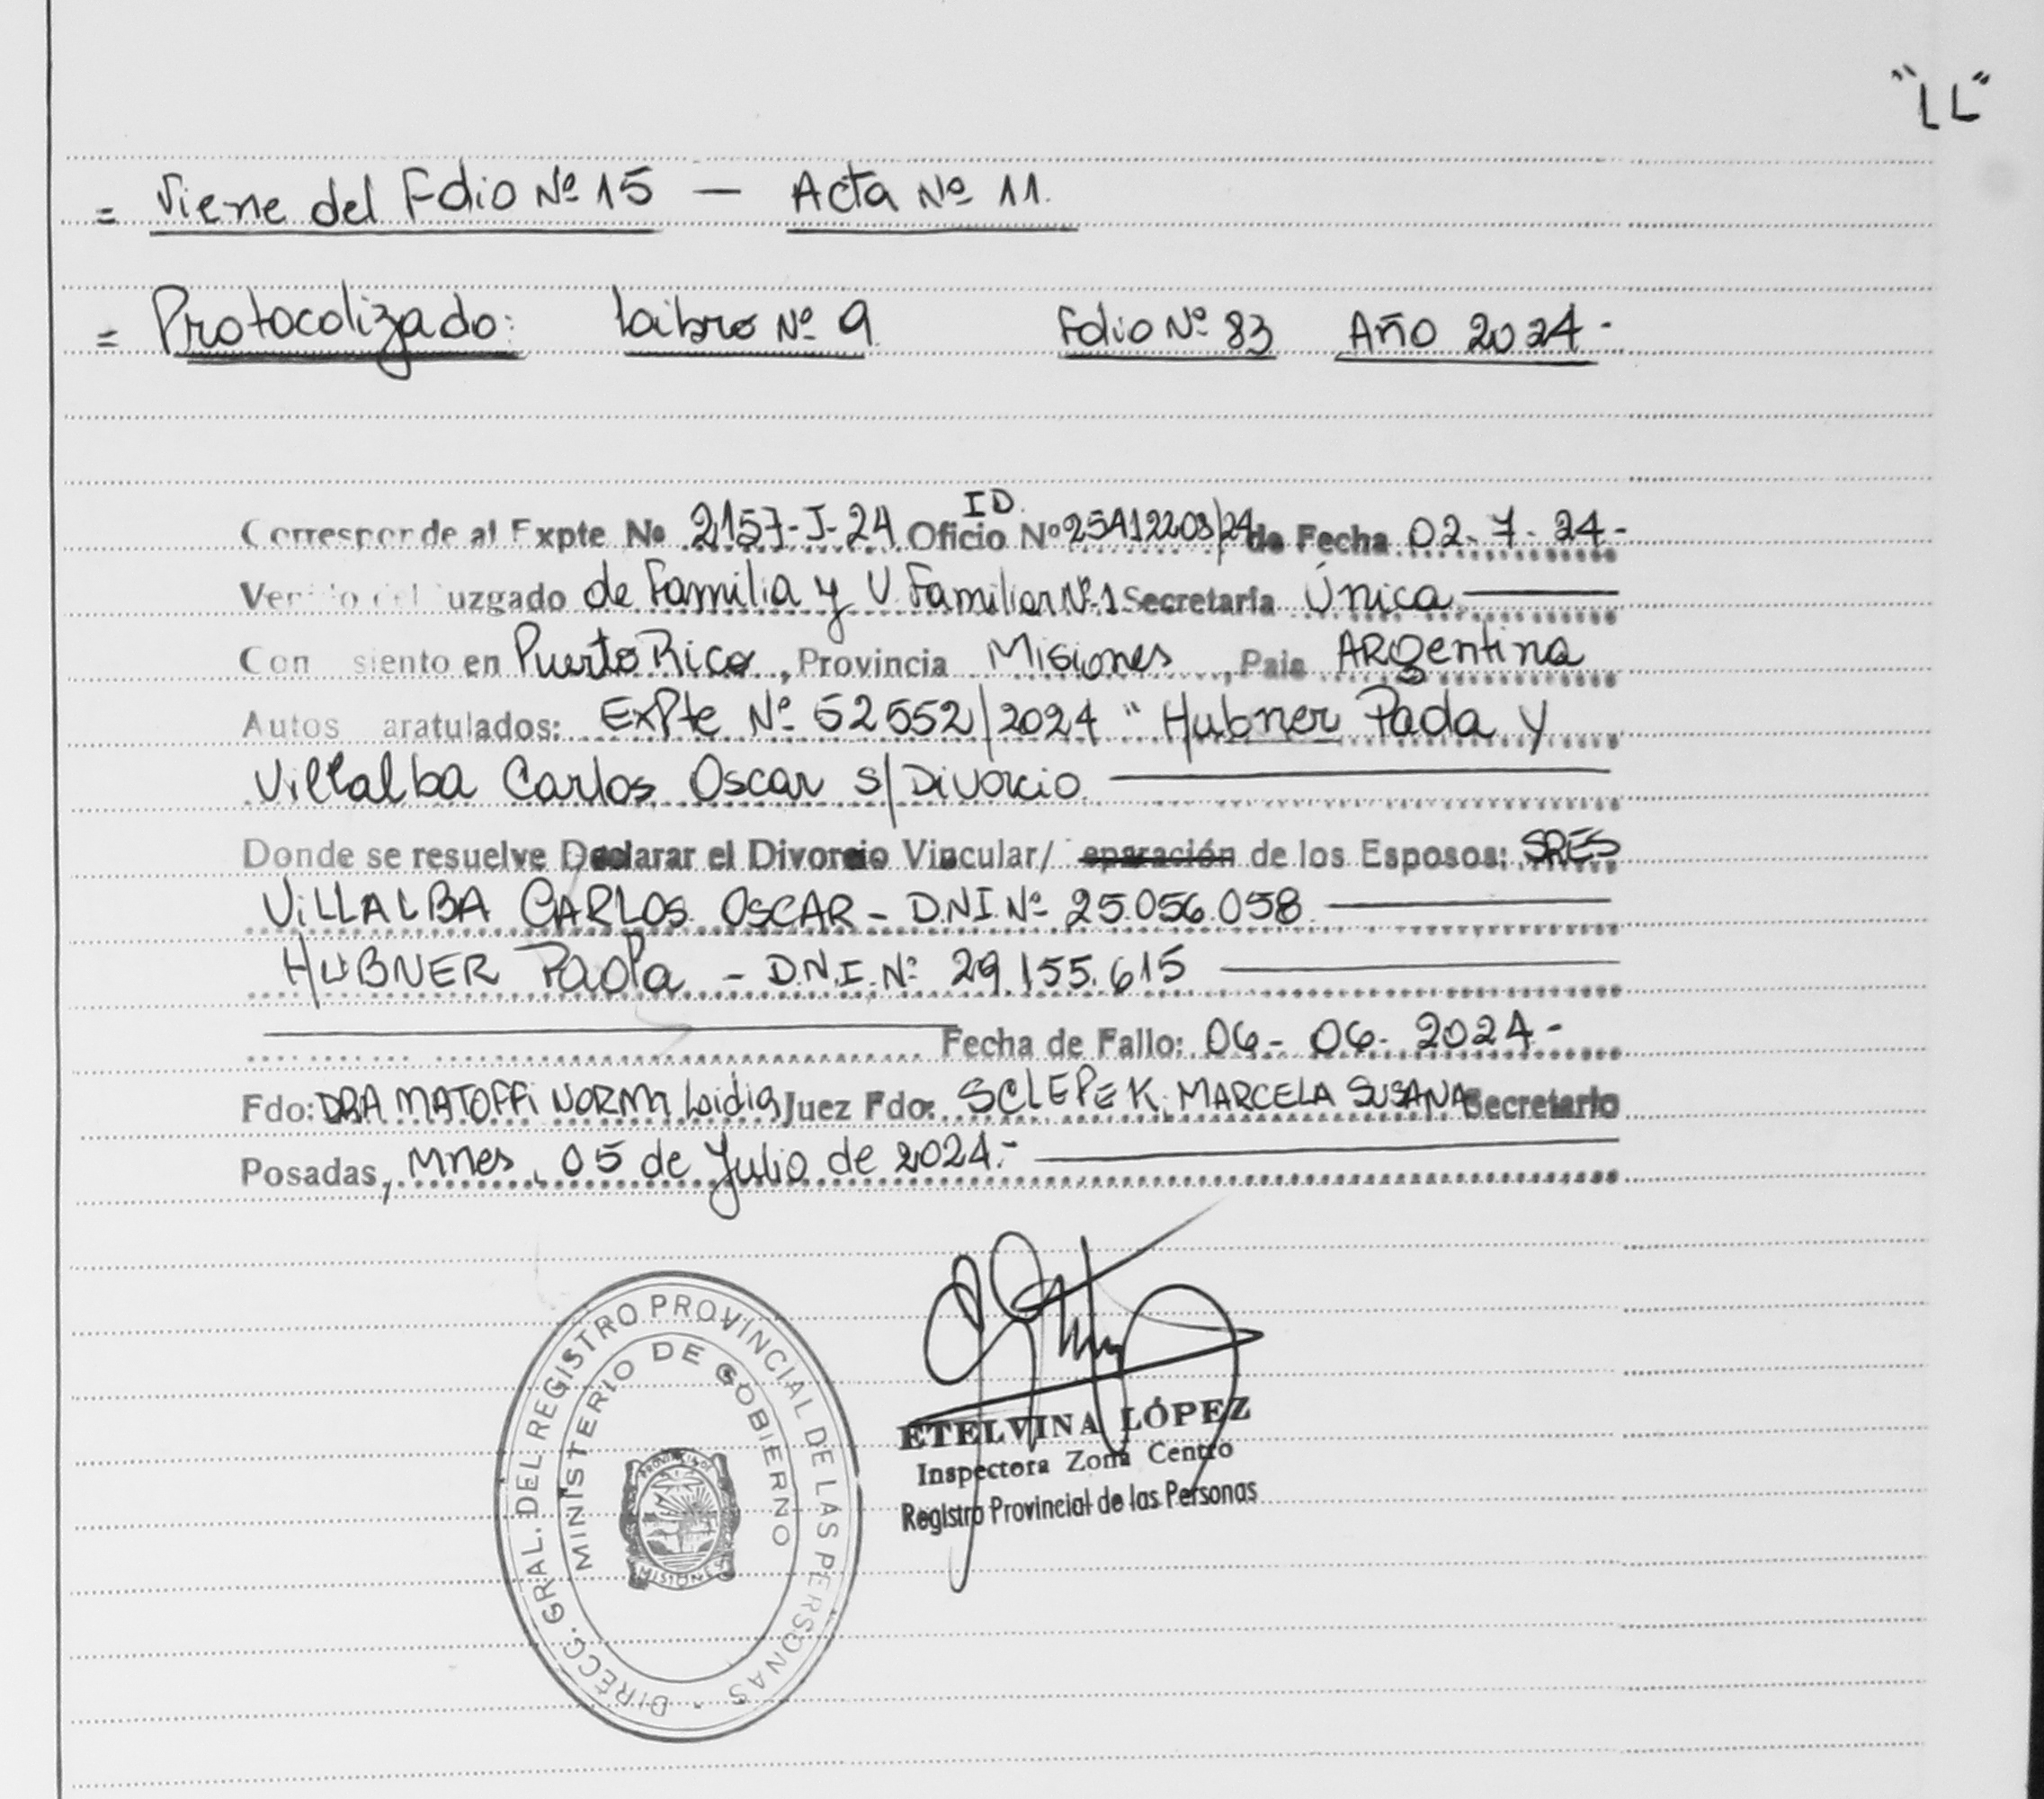 "LL"
= Viene del Folio Nº 15 — Acta Nº 11.
= Protocolizado: Libro Nº 9 Folio Nº 83 Año 2024.-
ID.
Corresponde al Expte Nº 2157-J-24 Oficio Nº 25412203/24 de Fecha 02-7-24-
Venido del Juzgado de Familia y V. Familiar Nº 1 Secretaría Única
Con siento en Puerto Rico, Provincia Misiones, País ARgentina
Autos aratulados: ExPte Nº 52552/2024 "Hubner Paola y
Villalba Carlos Oscar s/Divorcio
Donde se resuelve Declarar el Divorcio Vincular/ eparación de los Esposos: SRES
ViLLALBA CARLOS OSCAR - D.N.I. Nº 25.056.058
HUBNER Paola - D.N.I. Nº 29.155.615
Fecha de Fallo: 06-06-2024-
Fdo: DRA MATOFFi NORMA Lidia Juez Fdo: SCLEPEK, MARCELA SUSANA Secretario
Posadas, Mnes, 05 de Julio de 2024.-
DIRECC. GRAL. DEL REGISTRO PROVINCIAL DE LAS PERSONAS
MINISTERIO DE GOBIERNO
PROVINCIA DE
MISIONES
ETELVINA LÓPEZ
Inspectora Zona Centro
Registro Provincial de las Personas